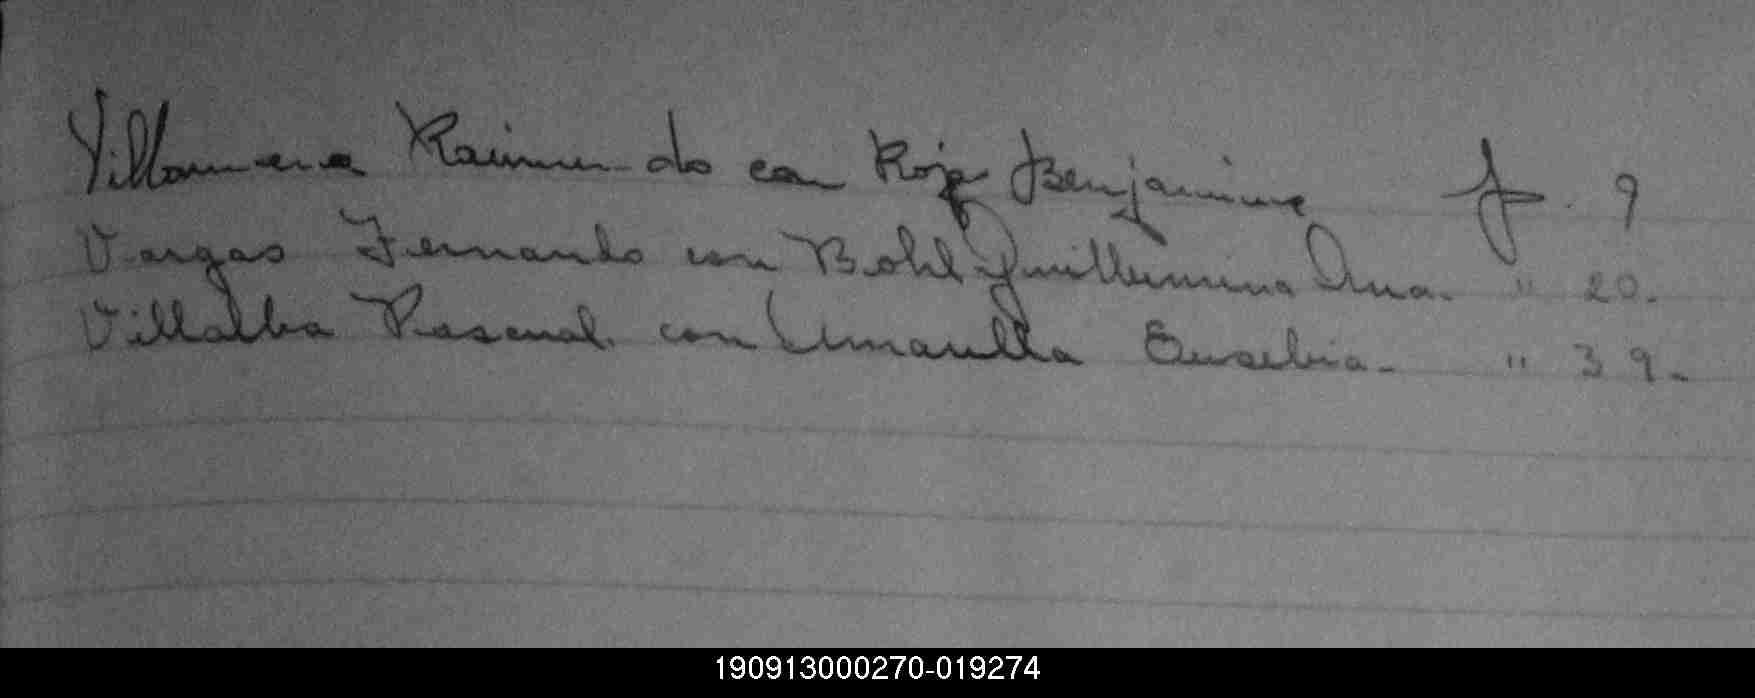 Villamena Raimundo con Rojas Benjamina f. 9
Vargas Fernando con Bohl Guillermina Ana. " 20.
Villalba Pascual con Umarilla Eusebia - " 39.-
190913000270-019274